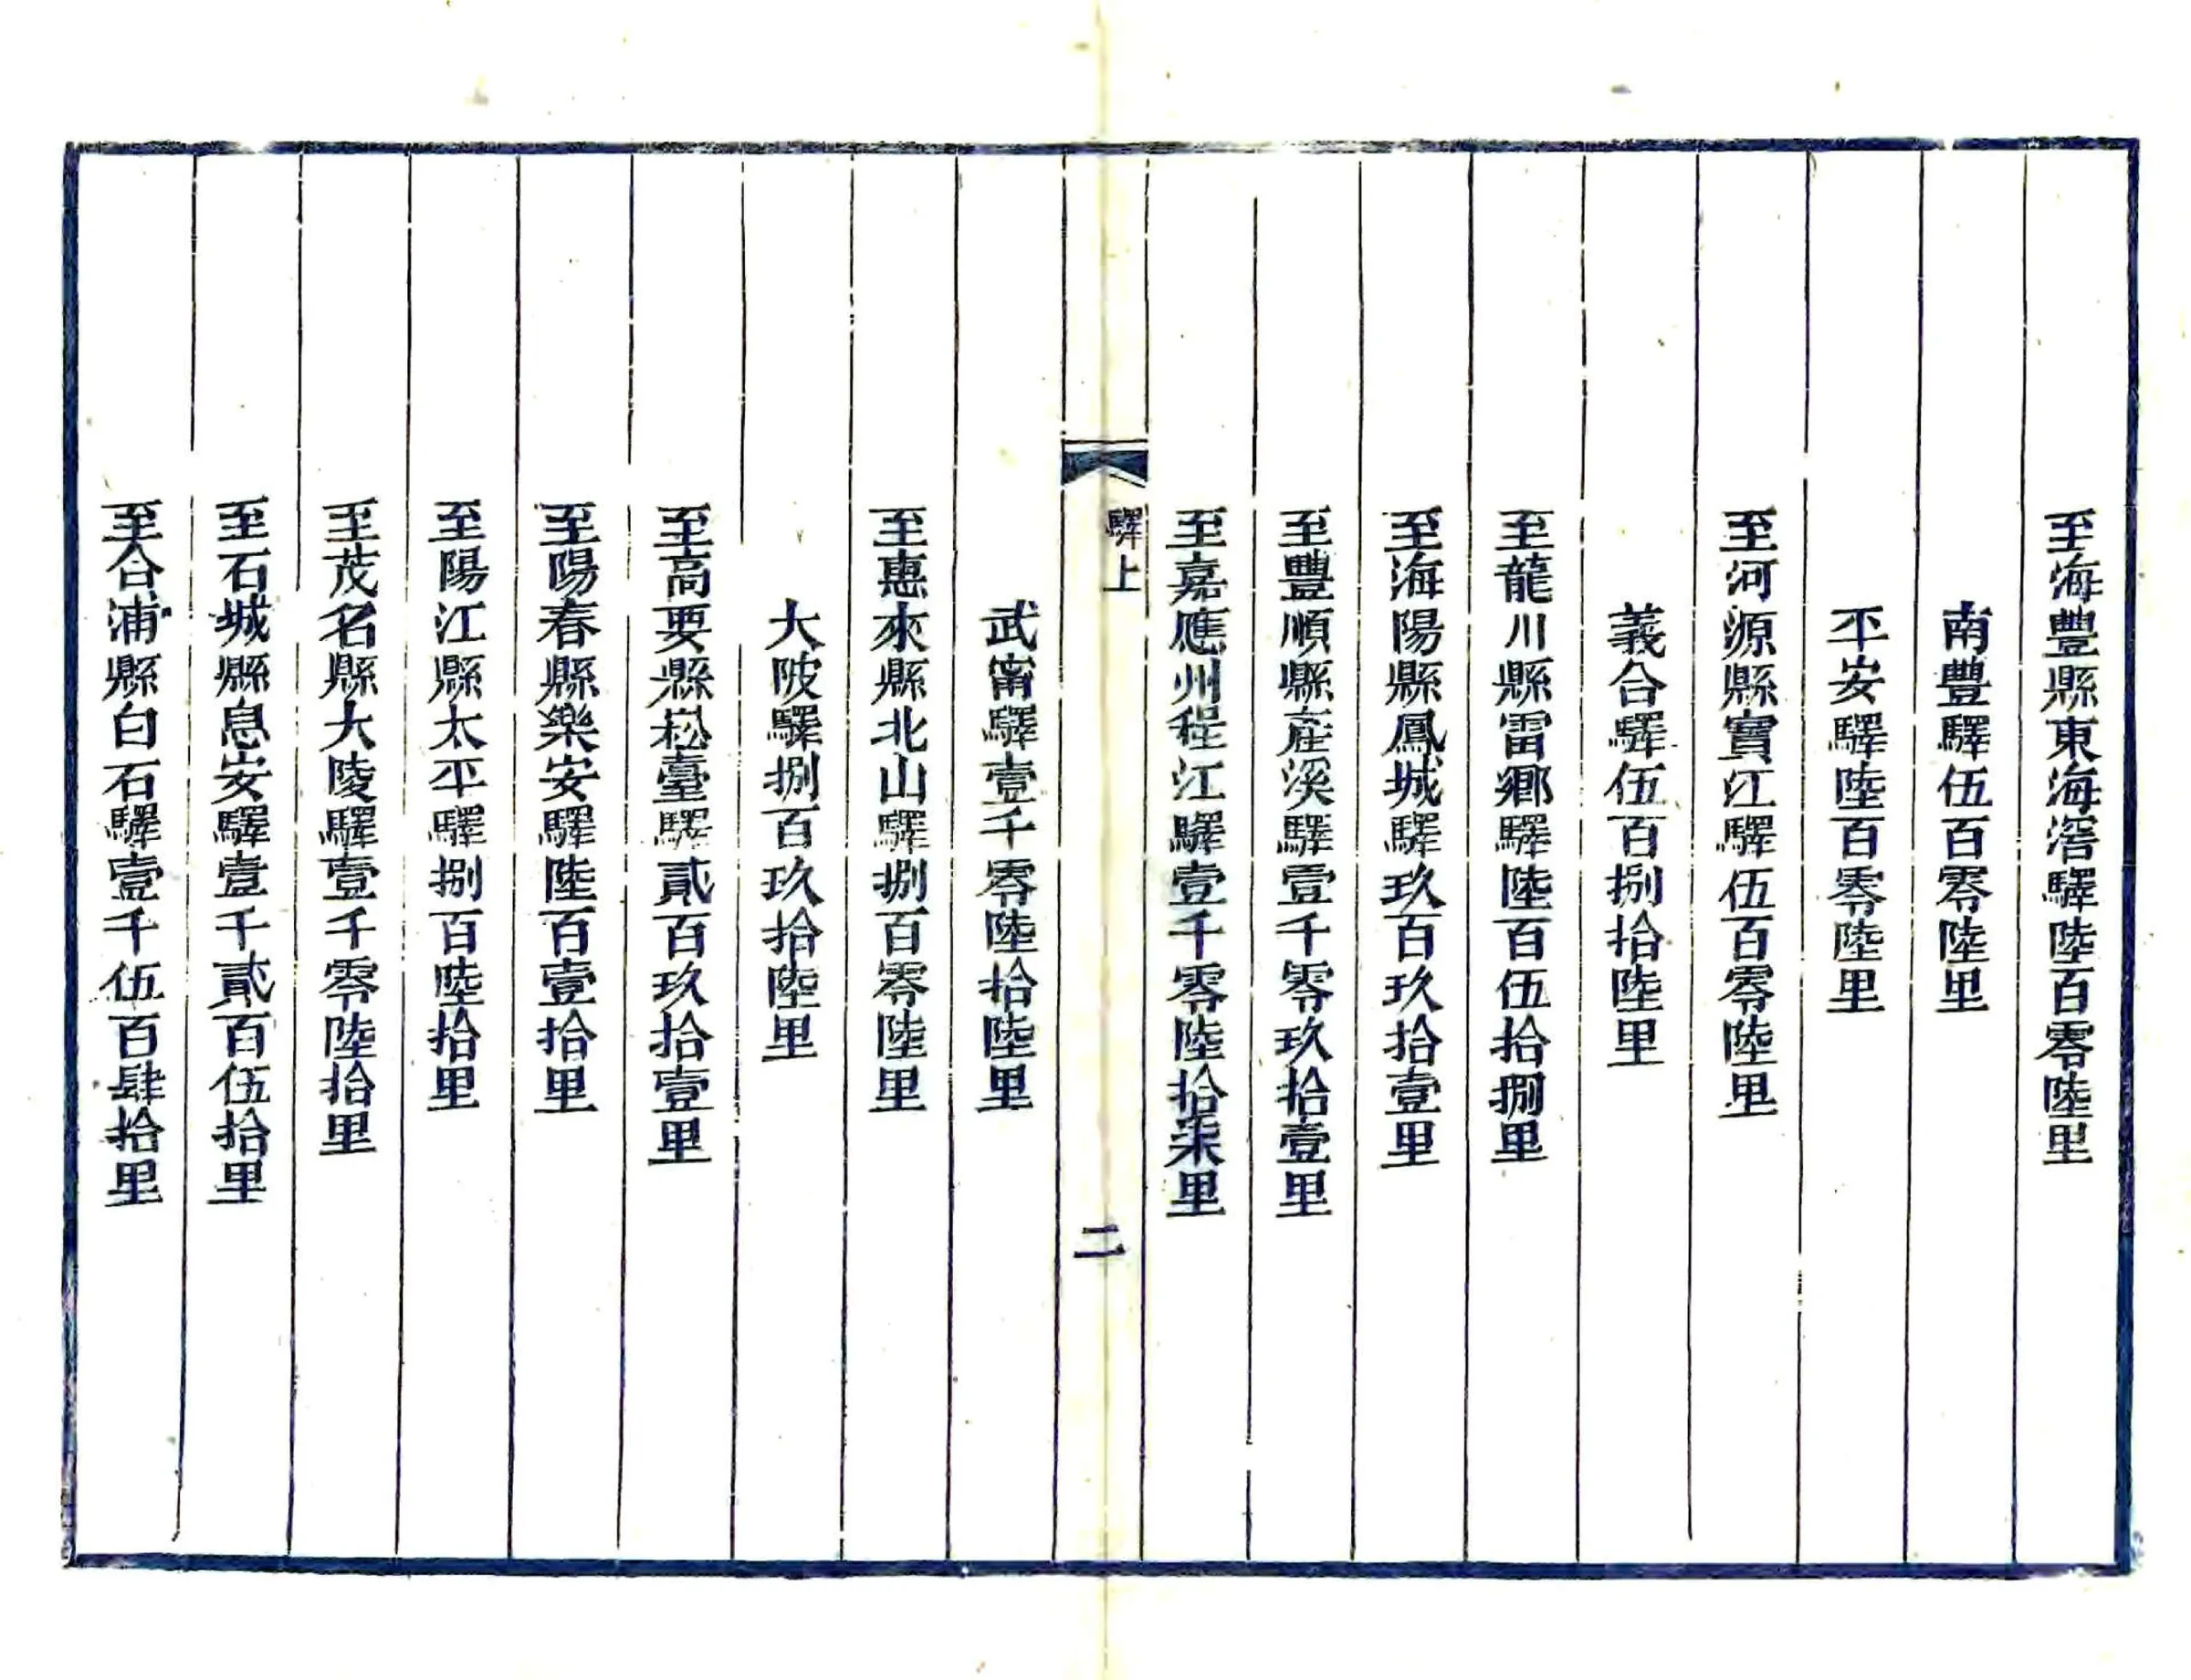 至海豐縣東海滘驛陸百零陸里
南豐驛伍百零陸里
平安驛陸百零陸里
至河源縣寶江驛伍百零陸里
義合驛伍百捌拾陸里
至龍川縣雷鄉驛陸百伍拾捌里
至海陽縣鳳城驛玖百玖拾壹里
至豐順縣產溪驛壹千零玖拾壹里
至嘉應州程江驛壹千零陸拾柒里
驛上
二
武甯驛壹千零陸拾陸里
至惠來縣北山驛捌百零陸里
大陂驛捌百玖拾陸里
至高要縣崧臺驛貳百玖拾壹里
至陽春縣樂安驛陸百壹拾里
至陽江縣太平驛捌百陸拾里
至茂名縣大陵驛壹千零陸拾里
至石城縣息安驛壹千貳百伍拾里
至合浦縣白石驛壹千伍百肆拾里